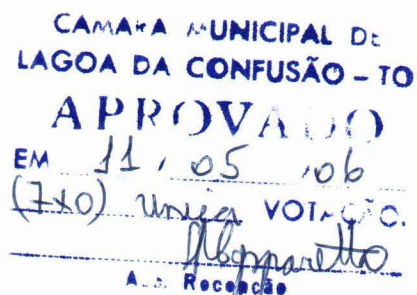 CAMARA MUNICIPAL DE
LAGOA DA CONFUSÃO – TO
APROVADO
EM 11 / 05 / 06
(7x0) única VOTAÇÃO.
Recepção